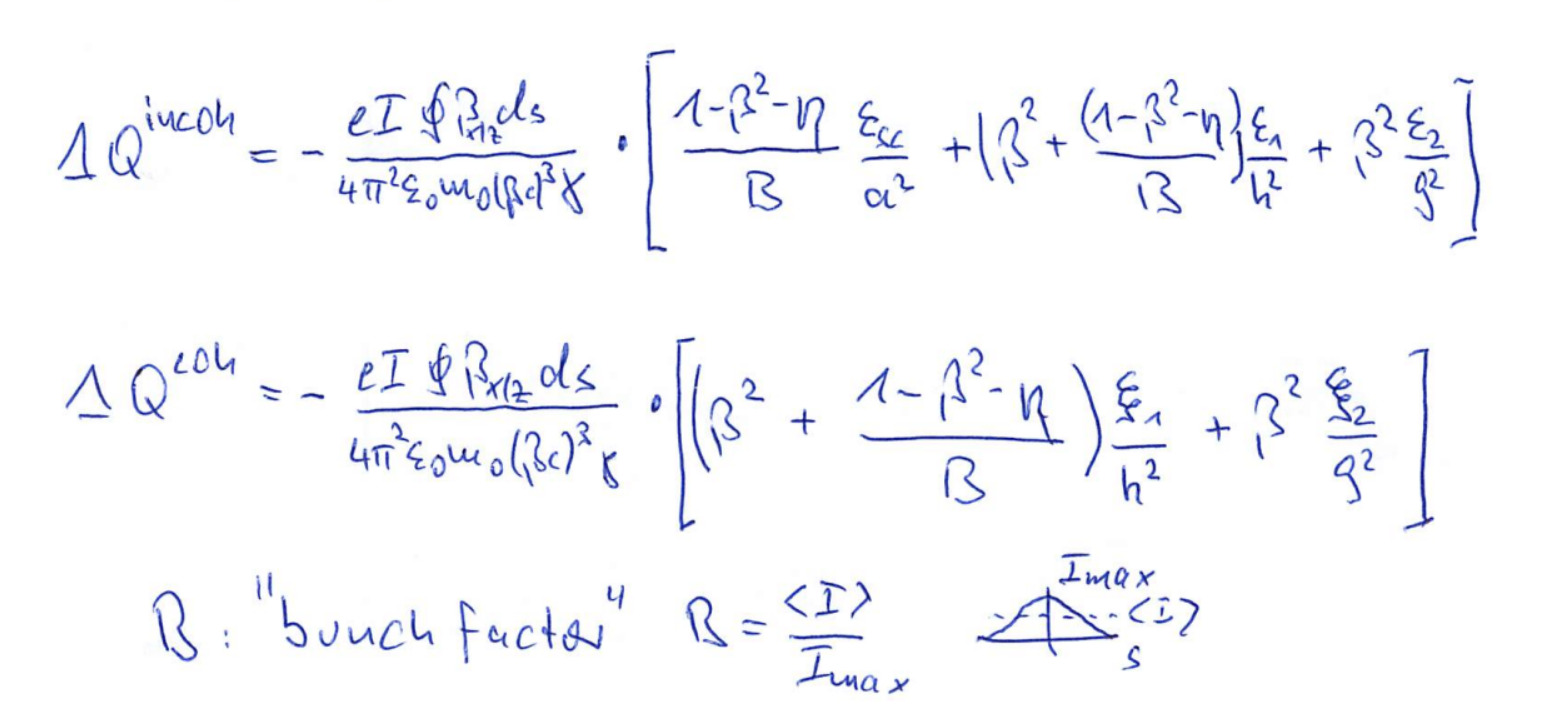 ΔQ^{incoh} = - \frac{eI ∮β_{x/z} ds}{4π²ε₀m₀(βc)³γ} · [ \frac{1-β²-η}{B} \frac{ε_{sc}}{a²} + (β² + \frac{(1-β²-η)}{B}) \frac{ε₁}{h²} + β² \frac{ε₂}{g²} ]
ΔQ^{coh} = - \frac{eI ∮β_{x/z} ds}{4π²ε₀m₀(βc)³γ} · [ (β² + \frac{1-β²-η}{B}) \frac{ξ₁}{h²} + β² \frac{ξ₂}{g²} ]
B: "bunch factor" B = \frac{<I>}{Imax} Imax <I> s